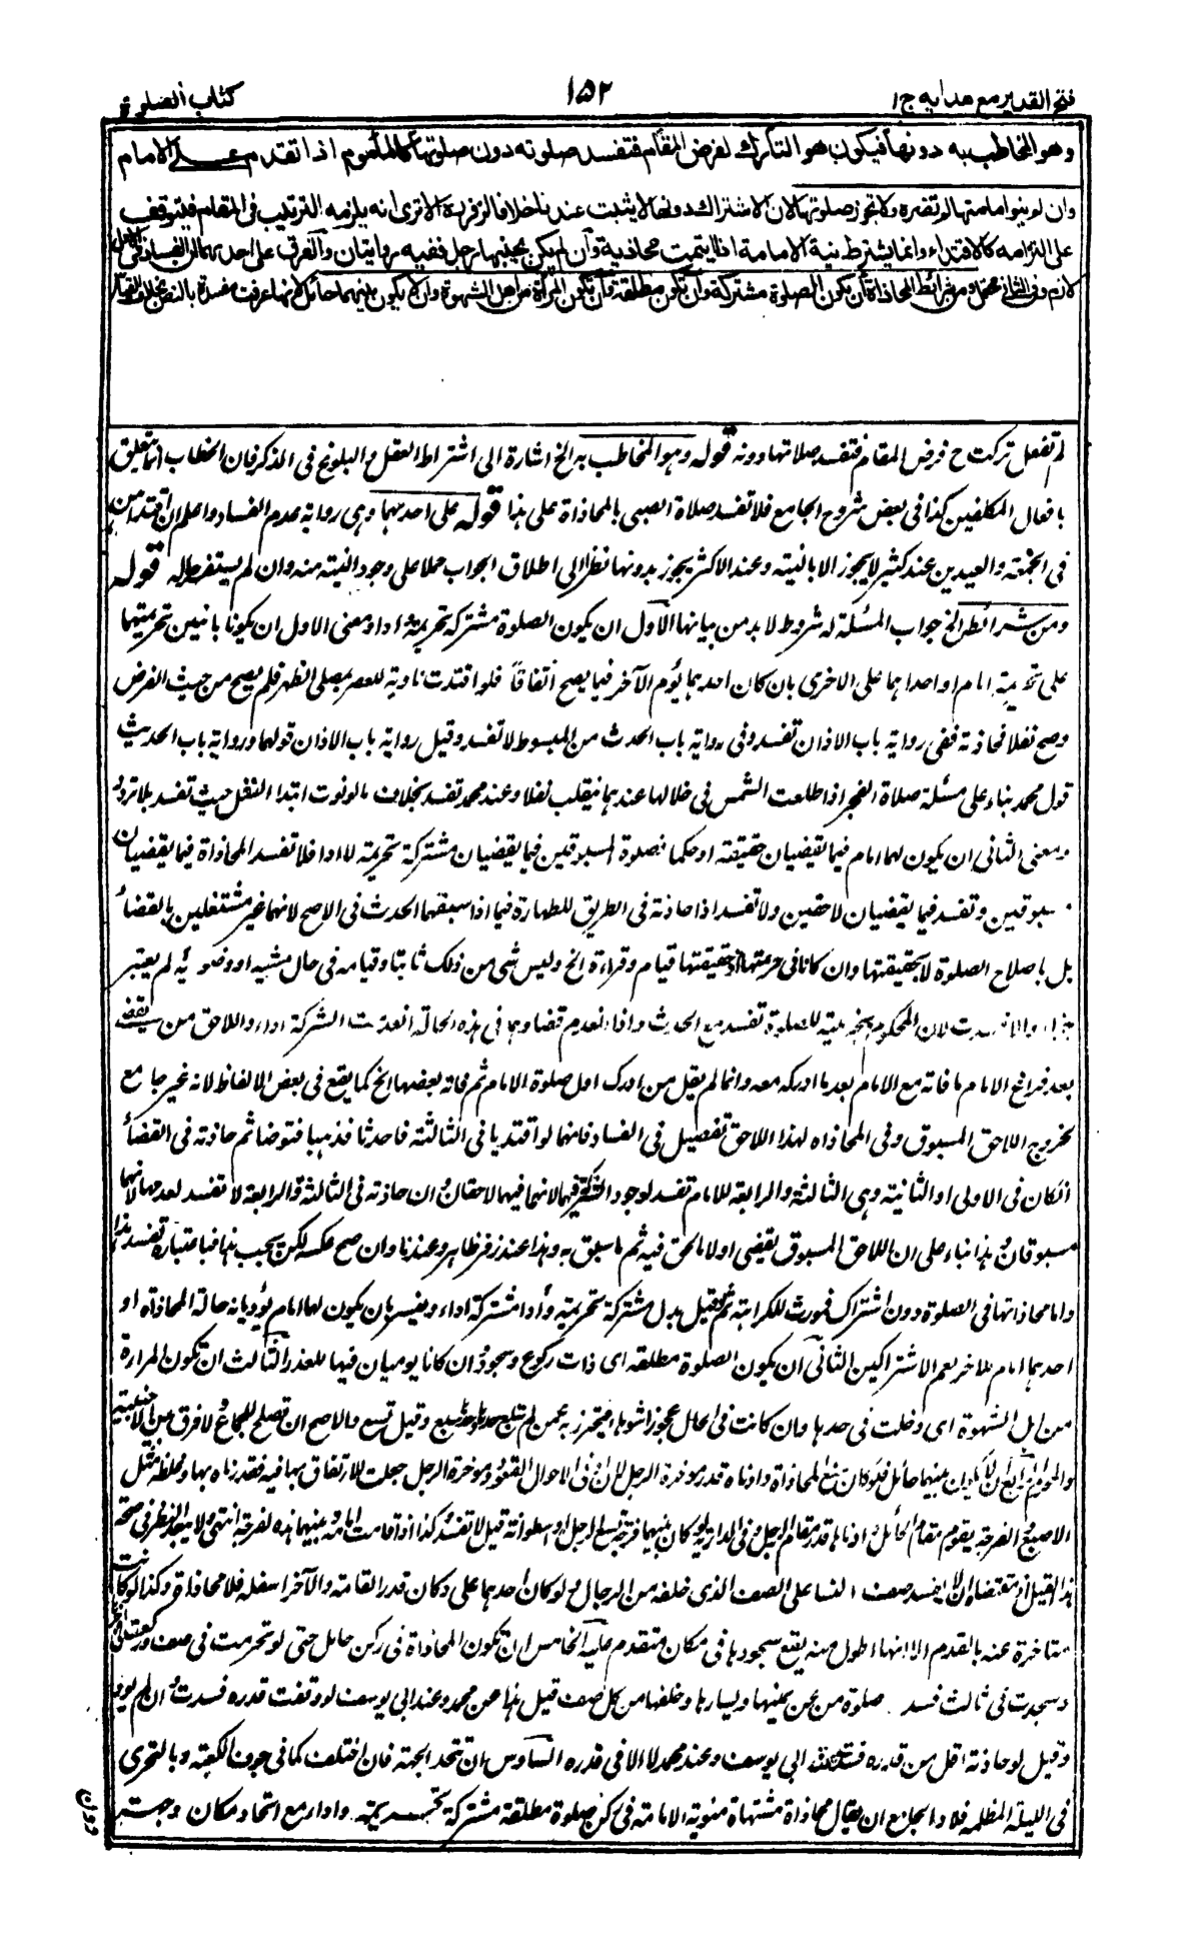 فتح القدير مع هدايه ج١ ١٥٢ كتاب الصلوة
وهو المخاطب به دونها فيكون هو التارك لفرض المقام فتفسد صلوته دون صلوتها كالمأموم اذا تقدم على الامام
وان لم ينو امامتها لم تضره ولا تجوز صلوتها لان الاشتراك دونها لا يثبت عندنا خلافا لزفر ره الا ترى انه يلزمه الترتيب فى المقام فيتوقف
على التزامه كالاقتداء وانما يشترط نية الامامة اذا ايتمت محاذية وان لم يكن بجنبها رجل ففيه روايتان والفرق على احدهما ان الفساد فى الاول
لازم وفى الثانى محتمل ومن شرائط المحاذاة ان تكون الصلوة مشتركة وان تكون مطلقة وان تكون المرأة من اهل الشهوة وان لا يكون بينهما حائل لانها عرفت مفسدة بالنص بخلاف القياس
لم تفعل تركت ح فرض المقام فتفسد صلاتها دونه قوله وهو المخاطب به الخ اشارة الى اشتراط العقل والبلوغ فى الذكر فان الخطاب انما يتعلق
بافعال المكلفين كذا فى بعض شروح الجامع فلا تفسد صلاة الصبى بالمحاذاة على هذا قوله على احدهما وهى رواية عدم الفساد واعلم ان اقتداءهن
فى الجمعة والعيدين عند كثير لا يجوز الا بالنية وعند الاكثر يجوز بدونها نظرا الى اطلاق الجواب حملا على وجود النية منه وان لم يستفطر له قوله
ومن شرائط الخ جواب المسئلة له شروط لا بد من بيانها الاول ان يكون الصلوة مشتركة تحريمة واداء ومعنى الاول ان يكونا بانيين تحريمتهما
على تحريمة امام او احداهما على الاخرى بان كان احدهما يؤم الآخر فيما يصح اتفاقا فلو اقتدت ناوية للعصر بمصلى الظهر فلم يصح من حيث الفرض
وصح نفلا فحاذته ففى رواية باب الاذان تفسد وفى رواية باب الحدث من المبسوط لا تفسد وقيل رواية باب الاذان قولهما ورواية باب الحديث
قول محمد بناء على مسئلة صلاة الفجر اذا طلعت الشمس فى خلالها عندهما ينقلب نفلا وعند محمد تفسد بخلاف ما لو نوت ابتداء النفل حيث تفسد بلا تردد
ومعنى الثانى ان يكون لهما امام فيما يقضيان حقيقة او حكما فصلوة المسبوقين فيما يقضيان مشتركة تحريمة لا اداء فلا تفسد المحاذاة فيما يقضيان
مسبوقين وتفسد فيما يقضيان لاحقين ولا تفسد اذا حاذته فى الطريق للطهارة فيما اذا سبقهما الحدث فى الاصح لانهما غير مشتغلين بالقضاء
بل باصلاح الصلوة لا بحقيقتها وان كانا فى حرمتها اذ حقيقتها قيام وقراءة الخ وليس شى من ذلك ثابتا وقيامه فى حال مشيه او وضوئه لم يعتبر
جزاء والا فسدت لان المحكوم بجزئيته للصلوة تفسد مع الحدث واذا انعدم قضاوهما فى هذه الحالة انعدمت الشركة اداء واللاحق من يقضى
بعد فراغ الامام ما فاته مع الامام بعد ما ادركه معه وانما لم يقل من ادرك اول صلوة الامام ثم فاته بعضها الخ كما يقع فى بعض الالفاظ لانه غير جامع
لخروج اللاحق المسبوق وفى المحاذاه لهذا اللاحق تفصيل فى الفساد فانهما لو اقتديا فى الثالثة فاحدثا فذهبا فتوضا ثم حاذته فى القضاء
ان كان فى الاولى او الثانية وهى الثالثة والرابعة للامام تفسد لوجود الشركة فيهما لانهما فيهما لاحقان وان حاذته فى الثالثة والرابعة لا تفسد لعدمها لانهما
مسبوقان وهذا بناء على ان اللاحق المسبوق يقضى اولا ما لحق فيه ثم ما سبق به وهذا عند زفر ظاهر وعندنا وان صح عكسه لكن يجب هذا فباعتباره تفسد هذا
واما محاذاتها فى الصلوة دون اشتراك فمورث للكراهة ثم لو قيل بدل مشتركة تحريمة واداء مشتركة اداء ويفسر بان يكون لهما امام يؤديانه حالة المحاذاة او
احدهما امام للآخر لعم الاشتراكين الثانى ان يكون الصلوة مطلقه اى ذات ركوع وسجود وان كانا يوميان فيها للعذر الثالث ان تكون المراة
من اهل الشهوة اى دخلت فى حدها وان كانت فى الحال عجوزا شوهاء فيحترز به عمن لم تبلغ حدها وحده سبع وقيل تسع والاصح ان تصلح للجماع ولا فرق بين الاجنبية
والمحرم الرابع ان لا يكون بينهما حائل فلو كان منع المحاذاة وادناه قدر موخرة الرحل لان ادنى الاحوال القعود وموخرة الرحل جعلت للارتفاق بها فيه فقدرناه بها وغلظه مثل
الاصبع والفرجة يقوم مقام الحائل وادناها قدر مقام الرجل وفى الدراية لو كان بينهما فرجة تسع الرجل او اسطوانة قيل لا تفسد وكذا اذا قامت امامه وبينهما هذه الفرجة انتهى ولا يبعد النظر فى صحة
هذا القيل اذ مقتضاه ان لا يفسد صف النساء على الصف الذى خلفه من الرجال ولو كان احدهما على دكان قدر القامة والآخر اسفله فلا محاذاة وكذا لو كانت
متاخرة عنه بالقدم الا انها اطول منه يقع سجودها فى مكان متقدم عليه الخامس ان تكون المحاذاة فى ركن كامل حتى لو تحرمت فى صف وركعت فى آخر
وسجدت فى ثالث فسد صلوة من عن يمينها ويسارها وخلفها من كل صف قيل هذا عن محمد وعند ابى يوسف لو وقفت قدره فسدت وان لم يود
وقيل لو حاذته اقل من قدره فسدت عند ابى يوسف وعند محمد لا الا فى قدره السادس ان تتحد الجهة فان اختلفت كما فى جوف الكعبة وبالتحرى
فى الليلة المظلمة فلا والجامع ان يقال محاذاة مشتهاة منوية الامامة فى ركن صلوة مطلقة مشتركة تحريمة واداء مع اتحاد مكان وجهة
دون